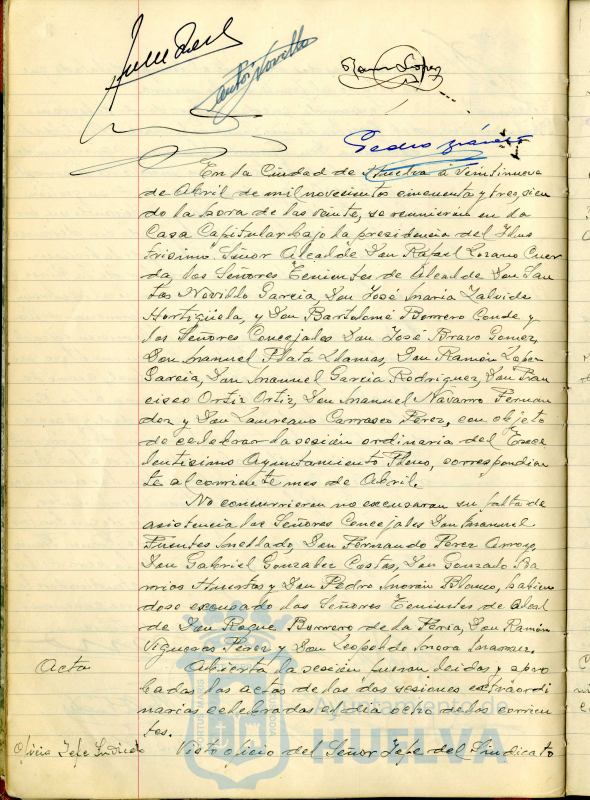 Ramón López
Pedro
En la Ciudad de Huelva á veintinueve
de Abril de mil novecientos cincuenta y tres, sien
do la hora de las veinte, se reunieron en la
Casa Capitular bajo la presidencia del Ilus
trisimo Señor Alcalde Don Rafael Lozano Cuer
da, los Señores Tenientes de Alcalde Don San
tos Novillo Garcia, Don José Maria Zalvide
Hortigüela, y Don Bartolomé Borrero Conde y
los Señores Concejales Don José Bravo Gomez,
Don Manuel Plata Llamas, Don Ramón López
Garcia, Don Manuel Garcia Rodriguez, Don Fran
cisco Ortiz Ortiz, Don Manuel Navarro Fernan
dez y Don Laureano Carrasco Perez, con objeto
de celebrar la sesión ordinaria del Exce
lentisimo Ayuntamiento Pleno, correspondien
te al corriente mes de Abril.
No concurrieron no excusaron su falta de
asistencia los Señores Concejales Don Manuel
Fuentes Mellado, Don Fernando Perez Arroyo,
Don Gabriel Gonzalez Costas, Don Gonzalo Ba
rrios Huertas y Don Pedro Morón Blanco, habien
dose excusado los Señores Tenientes de Alcal
de Don Roque Borrero de la Feria, Don Ramón
Vigueras Perez y Don Leopoldo Mora
Acta Abierta la sesión fueron leidas y apro
badas las actas de las dos sesiones extraordi
narias celebradas el dia ocho de los corrien
tes.
Oficio Jefe Sindicato Visto oficio del Señor Jefe del Sindicato
Ayuntamiento de
HUELVA